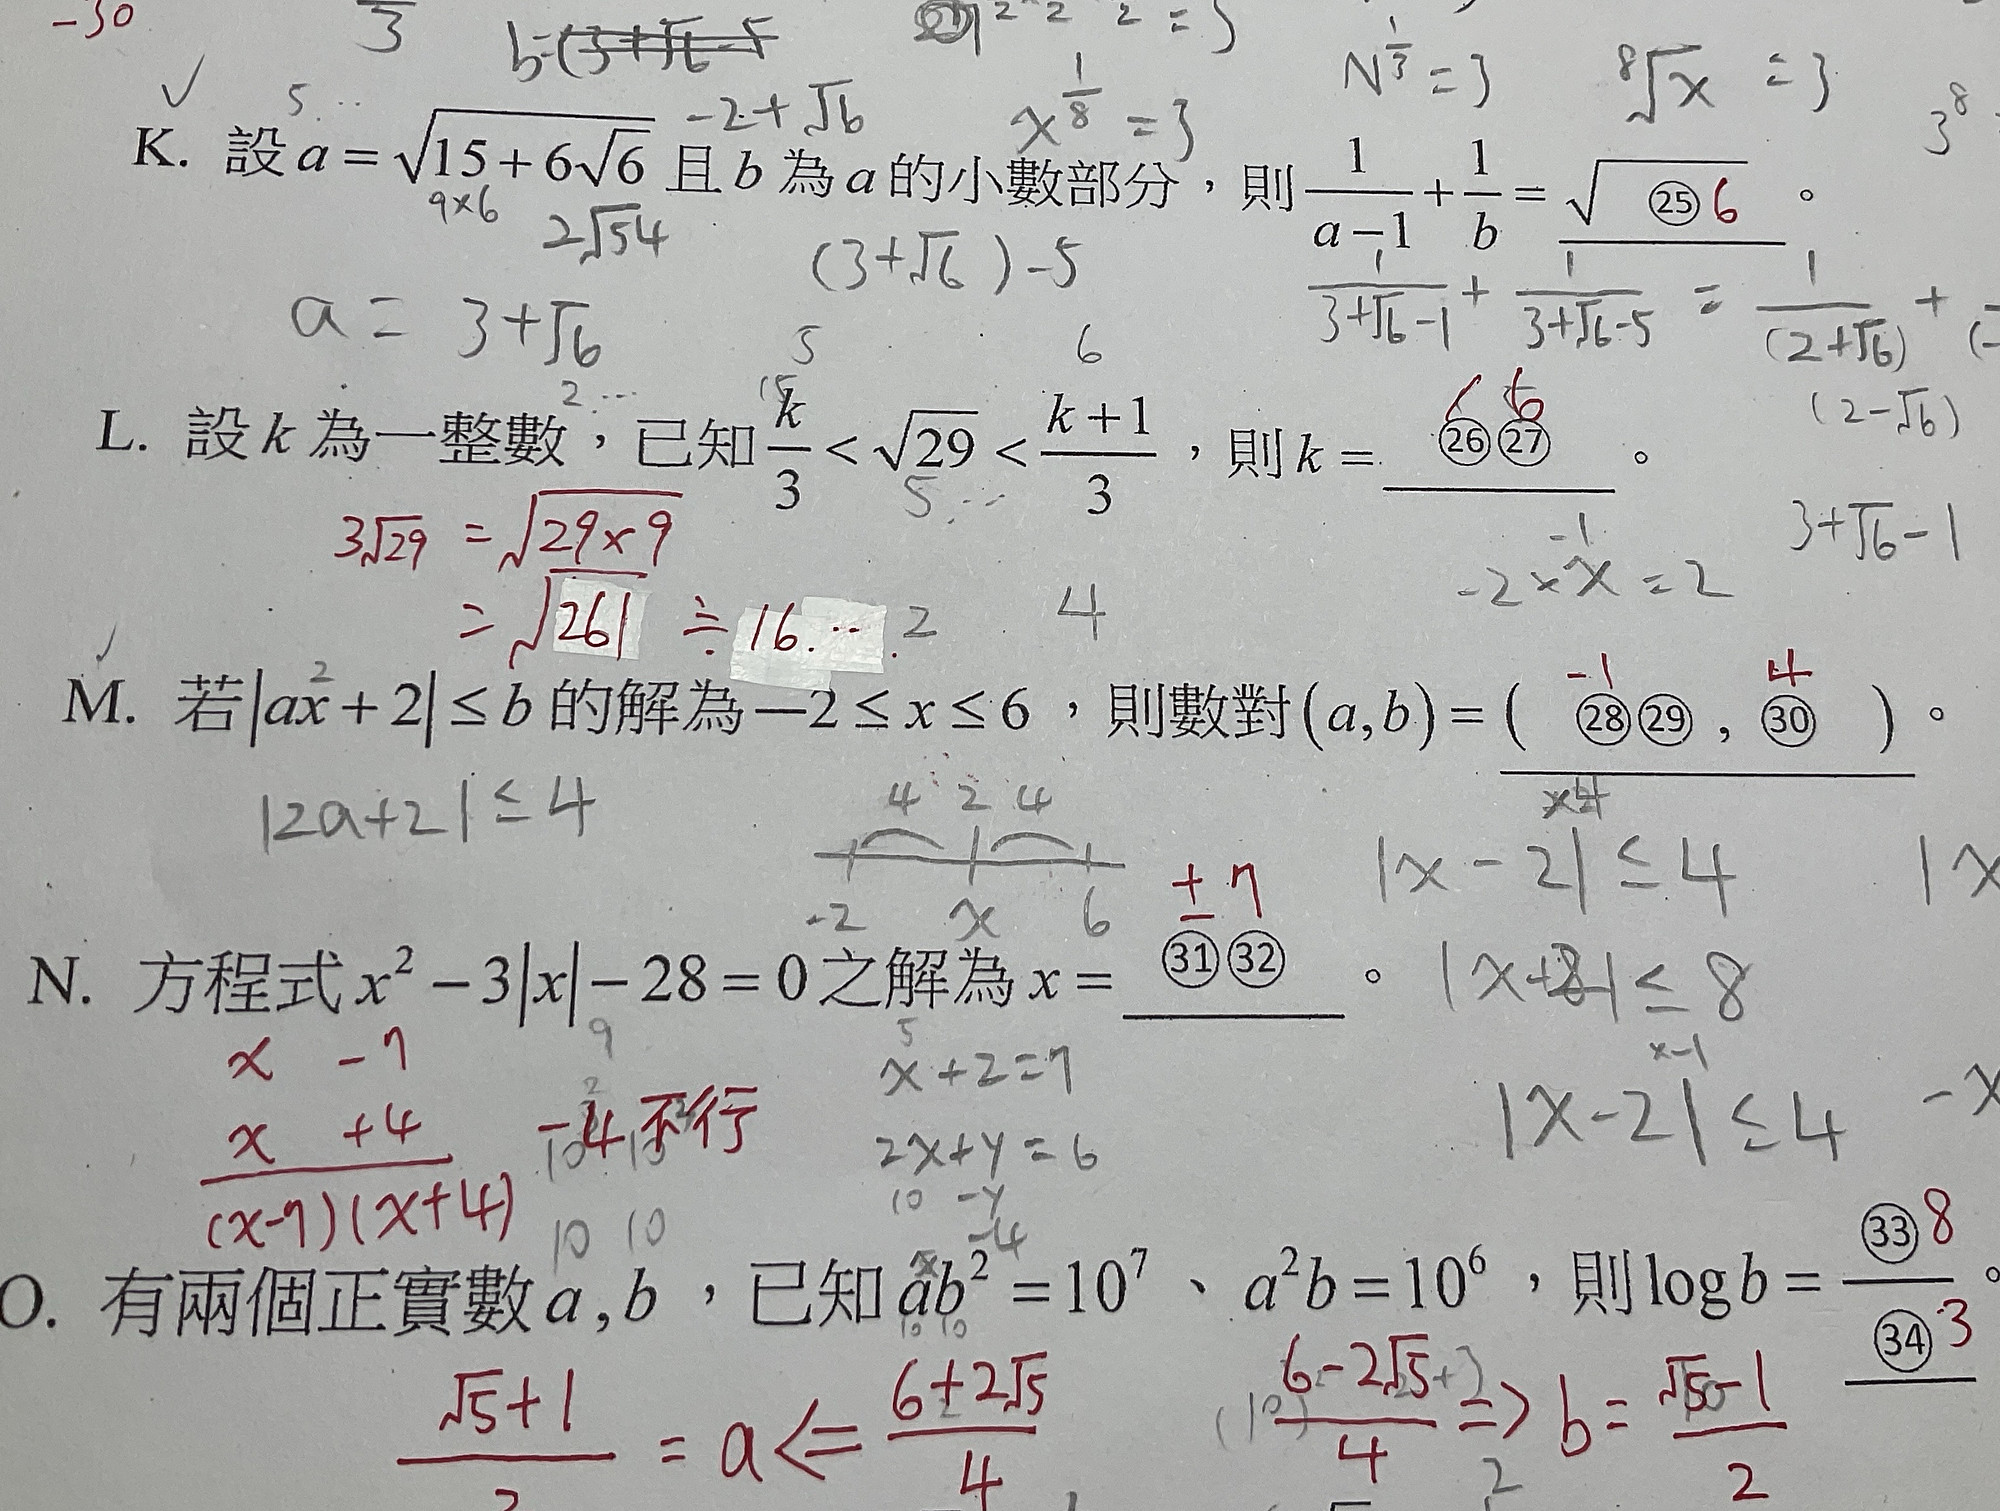 -30
3
b=(3+√6-5
2 2 2 = 3
N^(1/3) = 3
⁸√x = 3
3⁸
✓
5...
-2+√6
x^(1/8) = 3
K. 設 a = √(15+6√6) 且 b 為 a 的小數部分，則 1/(a−1) + 1/b = √(㉕ 6) 。
9×6
2√54
(3+√6)-5
a = 3+√6
1/(3+√6-1) + 1/(3+√6-5) = 1/(2+√6) +
(2-√6)
5
6
2...
15
6
L. 設 k 為一整數，已知 k/3 < √29 < (k+1)/3 ，則 k = ㉖㉗ 。
5...
3√29 = √(29×9)
= √261 ≒ 16... .2
4
-1
-2×x = 2
3+√6-1
✓
2
-1 4
M. 若 |ax+2| ≤ b 的解為 −2 ≤ x ≤ 6 ，則數對 (a,b) = ( ㉘㉙ , ㉚ ) 。
|2a+2| ≤ 4
4 2 4
-2 x 6
|x-2| ≤ 4
|x
± 7
N. 方程式 x² − 3|x| − 28 = 0 之解為 x = ㉛㉜ 。
|x+2| ≤ 8
x -7
9
5
x+2=7
x-1
x +4
-4不行
2x+y=6
|x-2| ≤ 4
-x
(x-7)(x+4)
10 10
10 -y
-4
O. 有兩個正實數 a,b ，已知 ab² = 10⁷ 、 a²b = 10⁶ ，則 log b = ㉝ 8/㉞ 3 。
10 10
(√5+1)/2 = a <= (6+2√5)/4
(6-2√5)/4 => b = (√5-1)/2
2